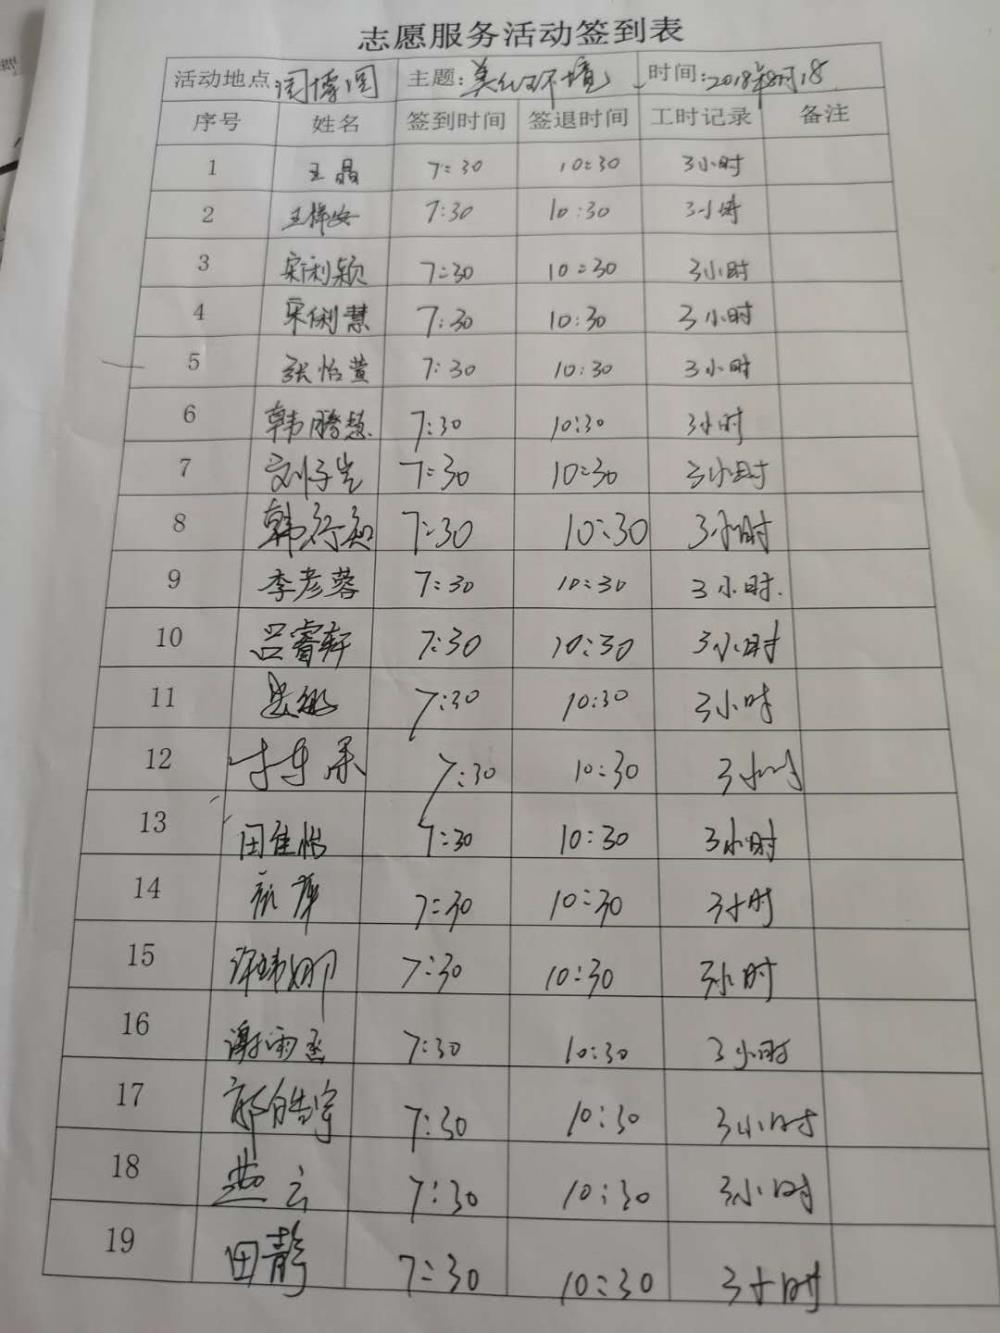 志愿服务活动签到表
活动地点 园博园 主题:美化环境 时间:2018年8月18
序号 姓名 签到时间 签退时间 工时记录 备注
1 王晶 7:30 10:30 3小时
2 王梓安 7:30 10:30 3小时
3 宋利颖 7:30 10:30 3小时
4 宋俐慧 7:30 10:30 3小时
5 张怡萱 7:30 10:30 3小时
6 韩腾慧 7:30 10:30 3小时
7 刘子尘 7:30 10:30 3小时
8 韩行知 7:30 10:30 3小时
9 李彦蓉 7:30 10:30 3小时.
10 吕睿轩 7:30 10:30 3小时
11 7:30 10:30 3小时
12 7:30 10:30 3小时
13 田佳怡 7:30 10:30 3小时
14 7:30 10:30 3小时
15 许娜 7:30 10:30 3小时
16 谢雨 7:30 10:30 3小时
17 皓宇 7:30 10:30 3小时
18 云 7:30 10:30 3小时
19 田静 7:30 10:30 3小时